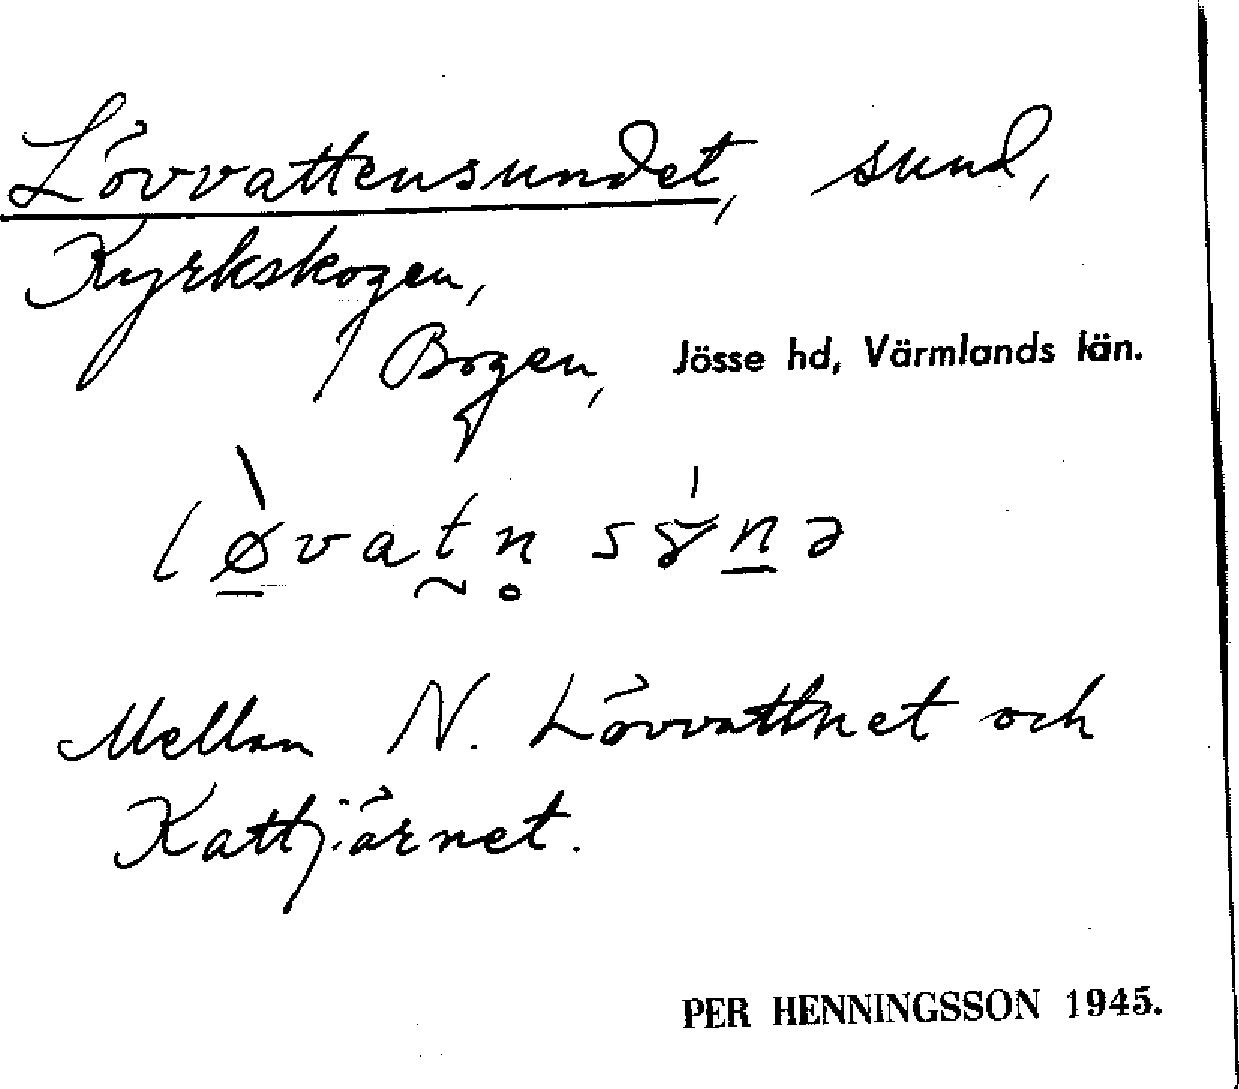 Lövvattensundet, sund,
Kyrkskogen,
Bogen, Jösse hd, Värmlands län.
lø̀vatn̥ sy̌nə
Mellan N. Lövvattnet och
Kattjärnet.
PER HENNINGSSON 1945.